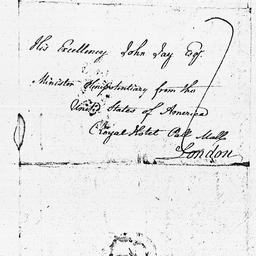 His Excellency John Jay Esqr.
Minister Plenipotentiary from the
United States of America
Royal Hotel Pall Mall
London